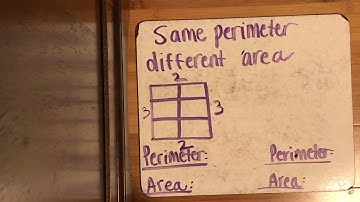 Same perimeter
different area
2
3 3
2
Perimeter: Perimeter:
Area: Area: